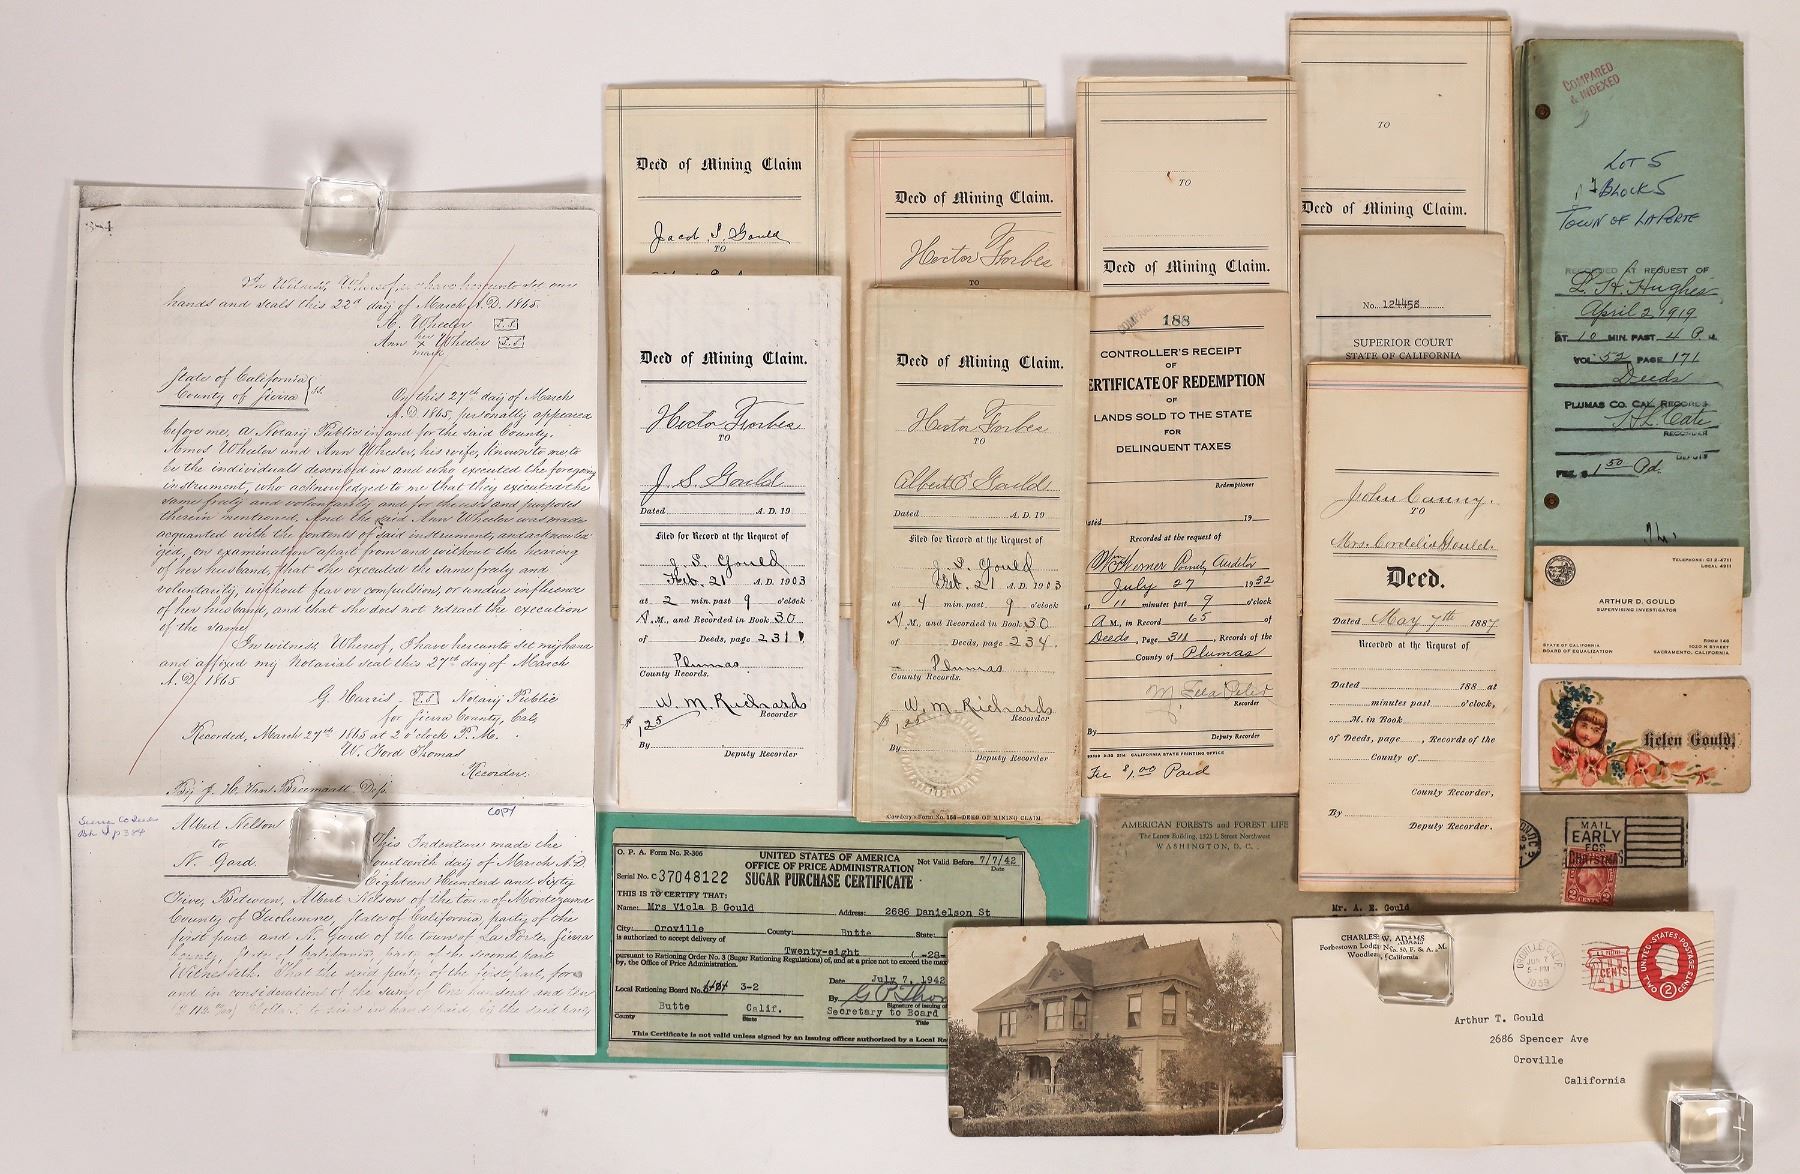 384
In Witness Whereof, we have hereunto set our
hands and seals this 22d day of March, A.D. 1865.
A. Wheeler L.S.
her
Ann x Wheeler L.S.
mark
State of California
County of Sierra } ss.
On this 27th day of March
A.D. 1865, personally appeared
before me, a Notary Public in and for the said County,
Amos Wheeler and Ann Wheeler, his wife, known to me to
be the individuals described in and who executed the foregoing
instrument, who acknowledged to me that they executed the
same freely and voluntarily and for the uses and purposes
therein mentioned. And the said Ann Wheeler was made
acquainted with the contents of said instrument, and acknowled
ged, on examination apart from and without the hearing
of her husband, that she executed the same freely and
voluntarily, without fear or compulsion, or undue influence
of her husband, and that she does not retract the execution
of the same.
In witness, Whereof, I have hereunto set my hand
and affixed my Notarial seal this 27th day of March
A.D. 1865
G. Harris L.S. Notary Public
for Sierra County, Cal.
Recorded, March 27th 1865 at 2 o'clock P.M.
W. Ford Thomas
Recorder.
COPY
Albert Nelson
to
N. Gard.
This Indenture made the
fourteenth day of March A.D.
Eighteen Hundred and Sixty
Five, Between, Albert Nelson of the town of Montezuma
County of Tuolumne, State of California, party of the
first part and N. Gard of the town of La Porte, Sierra
County, State of California, party of the second part
Witnesseth. That the said party of the first part, for
and in consideration of the sum of One hundred and Ten
Deed of Mining Claim
Jacob S. Gould
TO
Deed of Mining Claim.
Hector Forbes
TO
Deed of Mining Claim.
Hector Forbes
TO
J. S. Gould
Dated A. D. 19
Filed for Record at the Request of
J. S. Gould
Feb. 21 A. D. 1903
at 2 min. past 9 o'clock
A M., and Recorded in Book 30
of Deeds, page 231
Plumas
County Records.
W. M. Richards
Recorder
$1.25
By
Deputy Recorder
Deed of Mining Claim.
Hector Forbes
TO
Albert E Gould
Dated A. D. 19
Filed for Record at the Request of
J. S. Gould
Feb. 21 A. D. 1903
at 4 min. past 9 o'clock
A M., and Recorded in Book 30
of Deeds, page 234.
Plumas
County Records.
W. M. Richards
Recorder
$1.25
By
Deputy Recorder
Cowdery's Form No. 156—DEED OF MINING CLAIM
TO
Deed of Mining Claim.
188
CONTROLLER'S RECEIPT
OF
ERTIFICATE OF REDEMPTION
OF
LANDS SOLD TO THE STATE
FOR
DELINQUENT TAXES
Redemptioner
19
Recorded at the request of
County Auditor
July 27 1932
11 minutes past 9 o'clock
A M., in Record 65 of
Deeds, Page 311, Records of the
County of Plumas
Recorder
By
Deputy Recorder
CALIFORNIA STATE PRINTING OFFICE
Fee $1.00 Paid
TO
Deed of Mining Claim.
No. 124458
SUPERIOR COURT
STATE OF CALIFORNIA
John Canny.
TO
Mrs. Cordelia Gould.
Deed.
Dated May 7th 1887
Recorded at the Request of
Dated 188 at
minutes past o'clock,
M. in Book
of Deeds, page , Records of the
County of
County Recorder,
By Deputy Recorder.
COMPARED
& INDEXED
LOT 5
BLOCK 5
TOWN OF LAPORTE
RECORDED AT REQUEST OF
L. H. Hughes
April 2, 1919
AT 10 MIN. PAST 4 P. M.
VOL 52 PAGE 171
Deeds
PLUMAS CO. CAL. RECORDS
RECORDER
DEPUTY
FEE $ 1.50 Pd.
TELEPHONE: GI 2-4711
LOCAL 4911
ARTHUR D. GOULD
SUPERVISING INVESTIGATOR
STATE OF CALIFORNIA
BOARD OF EQUALIZATION
ROOM 146
1020 N STREET
SACRAMENTO, CALIFORNIA
Helen Gould,
O. P. A. Form No. R-306
UNITED STATES OF AMERICA
OFFICE OF PRICE ADMINISTRATION
SUGAR PURCHASE CERTIFICATE
Not Valid Before 7/7/42
Date
Serial No. C 37048122
THIS IS TO CERTIFY THAT:
Name: Mrs Viola B Gould Address: 2686 Danielson St
City: Oroville County: Butte State:
is authorized to accept delivery of
Twenty-eight (-28-
pursuant to Rationing Order No. 3 (Sugar Rationing Regulations) of, and at a price not to exceed the max
by, the Office of Price Administration.
Date July 7, 1942
Local Rationing Board No. 3-2
By
Signature of issuing of
Butte Calif. Secretary to Board
County State Title
This Certificate is not valid unless signed by an issuing officer authorized by a Local Ra
AMERICAN FORESTS and FOREST LIFE
The Lenox Building, 1523 L Street Northwest
WASHINGTON, D. C.
MAIL
EARLY
FOR
CHRISTMAS
2 CENTS 2
Mr. A. E. Gould
CHARLES W. ADAMS
Forbestown Lodge No. 50, F. & A. M.
Woodleaf, California
OROVILLE CALIF.
JUN 2
5-PM
1939
UNITED STATES POSTAGE
2
TWO CENTS
Arthur T. Gould
2686 Spencer Ave
Oroville
California